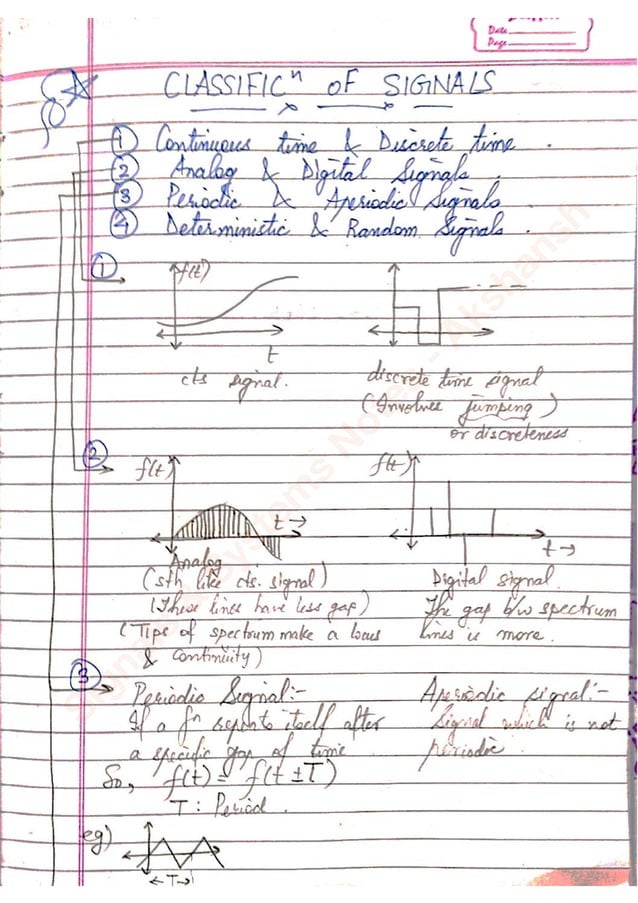 Date
Page
CLASSIFICⁿ OF SIGNALS
① Continuous time & Discrete time.
② Analog & Digital Signals.
③ Periodic & Aperiodic Signals.
④ Deterministic & Random Signals.
①
f(t)
t
cts signal.
discrete time signal
(Involves jumping)
or discreteness
②
f(t)
t→
f(t)
t→
Analog
(sth like cts. signal)
(These lines have less gap)
(Tips of spectrum make a locus
& continuity)
Digital signal.
The gap b/w spectrum
lines is more.
③
Periodic Signal:-
If a fⁿ repeats itself after
a specific gap of time
So, f(t) = f(t ± T)
T : Period.
Aperiodic signal:-
Signal which is not
periodic.
eg)
←T→
Signals & Systems Notes - Akshansh